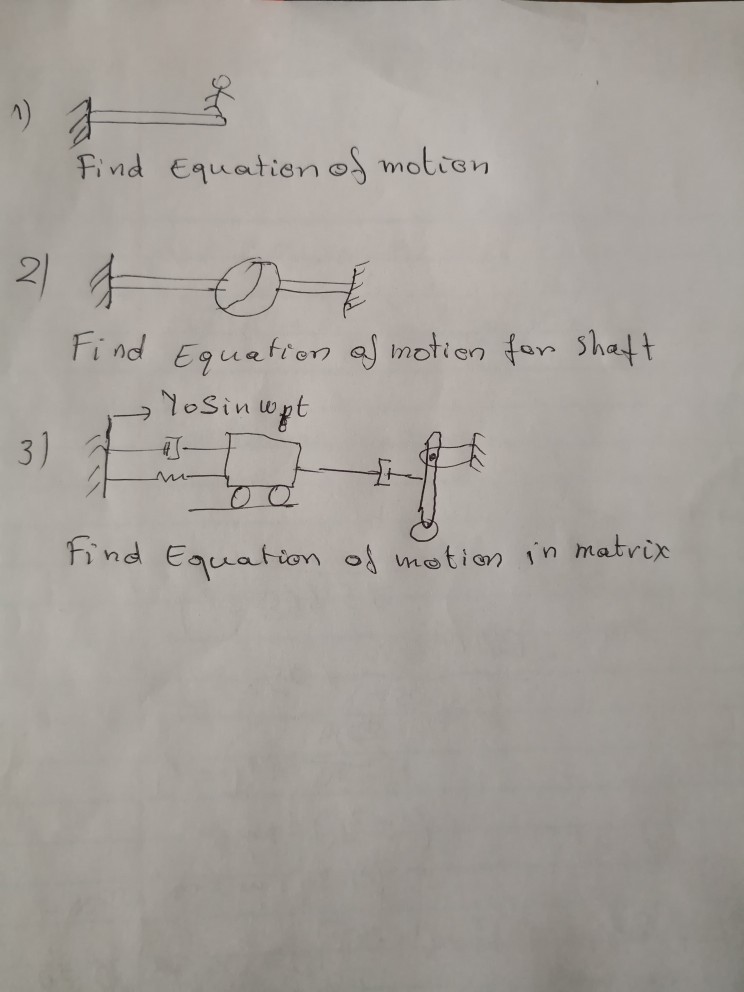 1)
Find Equation of motion
2)
J
Find Equation of motion for shaft
Yo Sin wft
3)
Find Equation of motion in matrix